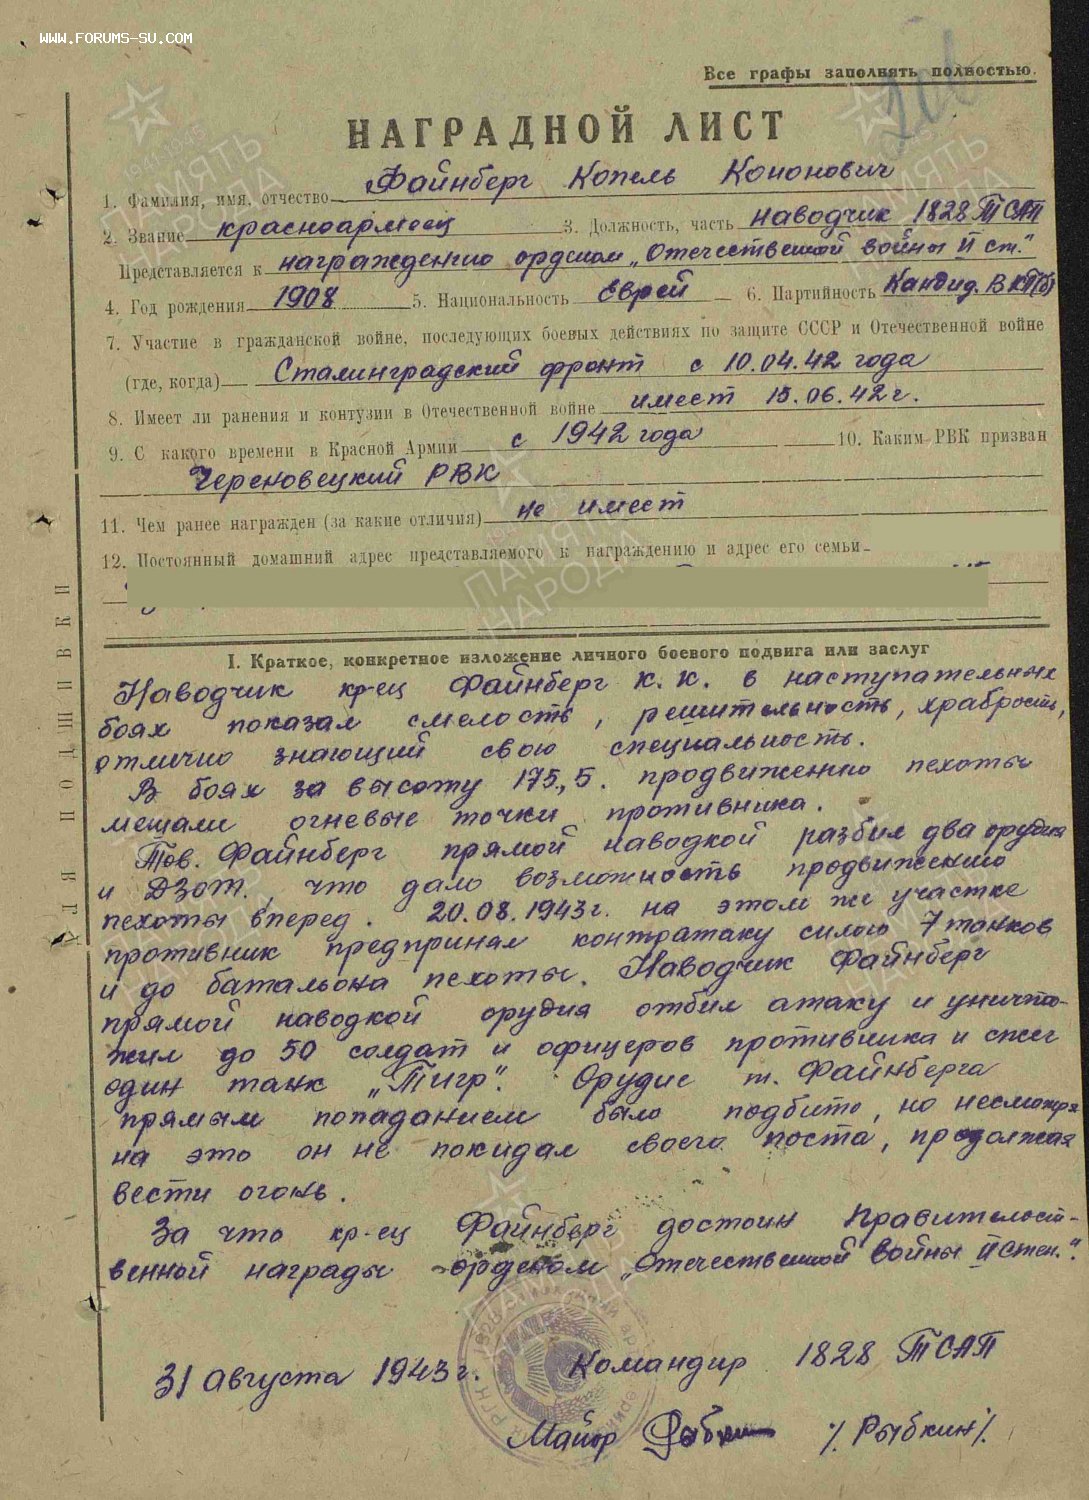 WWW.FORUMS-SU.COM
Все графы заполнять полностью.
НАГРАДНОЙ ЛИСТ
1. Фамилия, имя, отчество Файнберг Копель Кононович
2. Звание красноармеец 3. Должность, часть наводчик 1828 ТСАП
Представляется к награждению орденом „Отечественной войны II ст."
4. Год рождения 1908 5. Национальность Еврей 6. Партийность Кандид. ВКП(б)
7. Участие в гражданской войне, последующих боевых действиях по защите СССР и Отечественной войне
(где, когда) Сталинградский фронт с 10.04.42 года
8. Имеет ли ранения и контузии в Отечественной войне имеет 15.06.42 г.
9. С какого времени в Красной Армии с 1942 года 10. Каким РВК призван
Череновецкий РВК
11. Чем ранее награжден (за какие отличия) не имеет
12. Постоянный домашний адрес представляемого к награждению и адрес его семьи
I. Краткое, конкретное изложение личного боевого подвига или заслуг
Наводчик кр-ец Файнберг К. К. в наступательных
боях показал смелость, решительность, храбрость,
отлично знающий свою специальность.
В боях за высоту 175,5. продвижению пехоты
мешали огневые точки противника.
Тов. Файнберг прямой наводкой разбил два орудия
и ДЗОТ, что дало возможность продвижению
пехоты вперед. 20.08.1943г. на этом же участке
противник предпринял контратаку силою 7 танков
и до батальона пехоты. Наводчик Файнберг
прямой наводкой орудия отбил атаку и уничто-
жил до 50 солдат и офицеров противника и сжег
один танк „Тигр". Орудие т. Файнберга
прямым попаданием было подбито, но несмотря
на это он не покидал своего поста, продолжая
вести огонь.
За что кр-ец Файнберг достоин Правительст-
венной награды орденом „Отечественной войны II степ."
31 августа 1943 г. Командир 1828 ТСАП
Майор /Рыбкин/.
ДЛЯ ПОДШИВКИ
ПАМЯТЬ НАРОДА